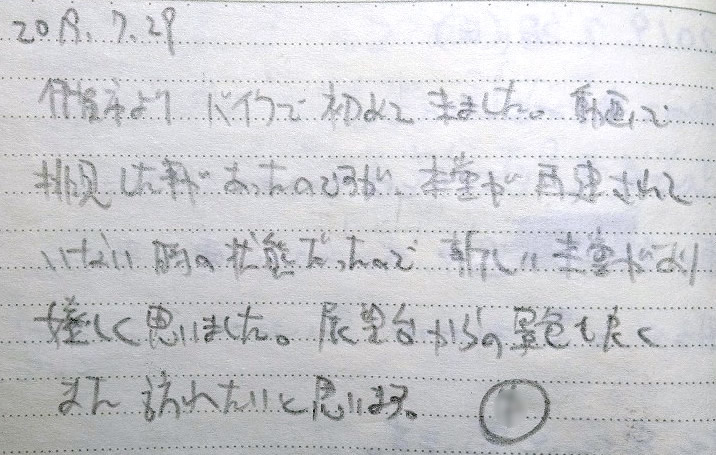 2019.7.29
より バイクで 初めて 来ました。動画で
拝見した事があったのですが、本堂が再建されて
いない時の状態だったので 新しい本堂がより
嬉しく思いました。展望台からの景色も良く
また 訪れたいと思います。